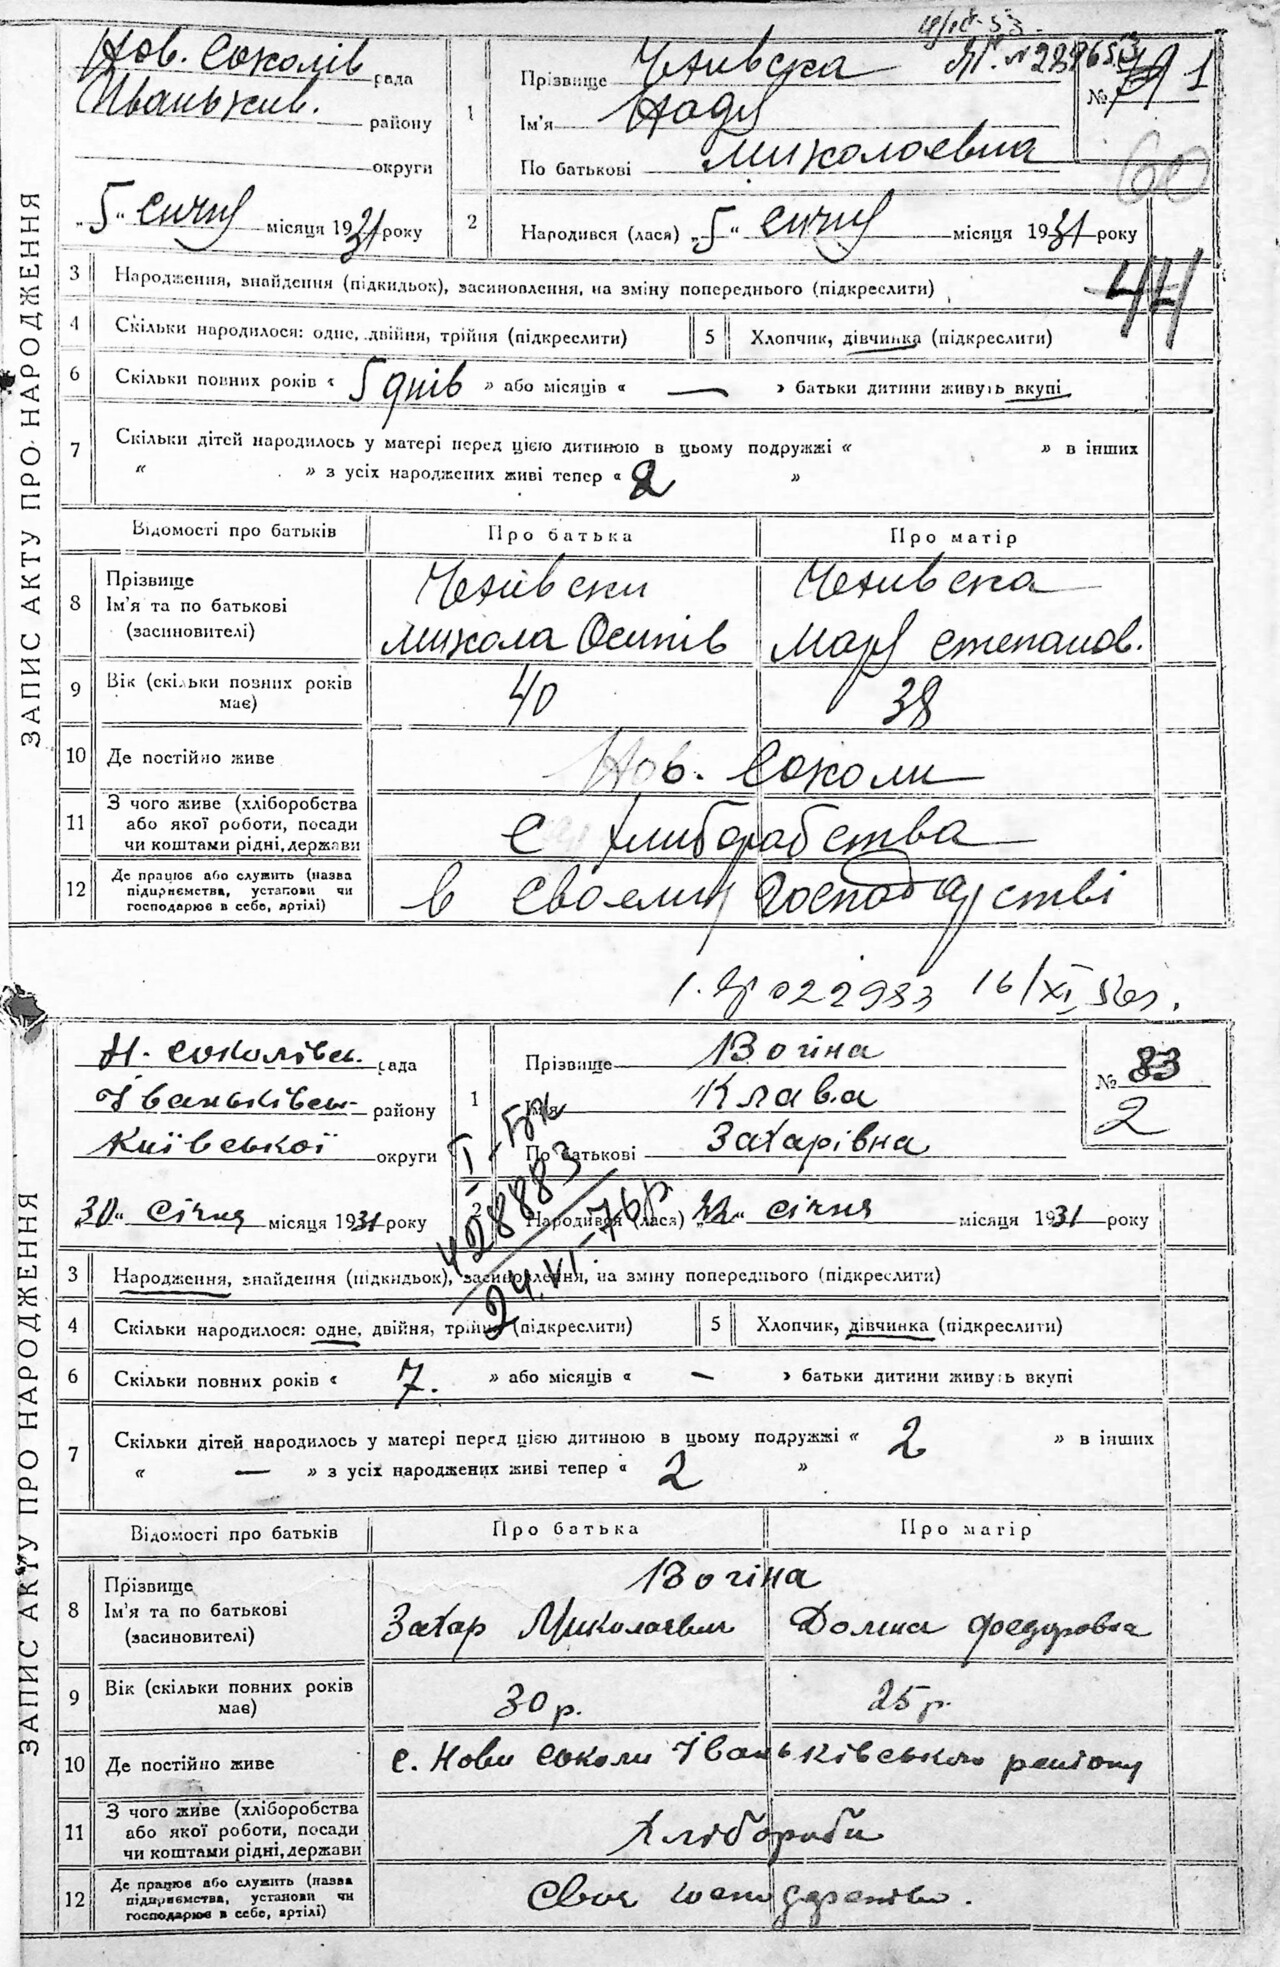 ЗАПИС АКТУ ПРО НАРОДЖЕННЯ
Нов. Соколів рада
Іваньків. району
округи
„5“ Січня місяця 1931 року
1 Прізвище Чехивска
Ім'я Надя
По батькові Миколаевна
№ 1
60
2 Народився (лася) „5“ Січня місяця 1931 року
44
3 Народження, знайдення (підкидьок), засиновлення, на зміну попереднього (підкреслити)
4 Скільки народилося: одне, двійня, трійня (підкреслити) 5 Хлопчик, дівчинка (підкреслити)
6 Скільки повних років « 5 днів » або місяців « — » батьки дитини живуть вкупі
7 Скільки дітей народилось у матері перед цією дитиною в цьому подружжі « » в інших
“ » з усіх народжених живі тепер « 2 »
Відомості про батьків Про батька Про матір
8 Прізвище Чехивски Чехивска
Ім'я та по батькові
(засиновителі) Микола Осипів Маря Степанов.
9 Вік (скільки повних років має) 40 38
10 Де постійно живе Нов. Соколи
11 З чого живе (хліборобства
або якої роботи, посади С хлиборабства
чи коштами рідні, держави
12 Де працює або служить (назва
підприємства, установи чи в своему господарстві
господарює в себе, артілі)
022983 16/XI
ЗАПИС АКТУ ПРО НАРОДЖЕННЯ
Н. Соколівс. рада
Іваньківськ. району
Київської округи
30“ Січня місяця 1931 року
1 Прізвище Вогіна
Ім'я Клава
По батькові Захарівна
№ 83
2
2 Народився (лася) „22“ січня місяця 1931 року
I-БК
428883
24.VI-76р.
3 Народження, знайдення (підкидьок), засиновлення, на зміну попереднього (підкреслити)
4 Скільки народилося: одне, двійня, трійня (підкреслити) 5 Хлопчик, дівчинка (підкреслити)
6 Скільки повних років « 7. » або місяців « — » батьки дитини живуть вкупі
7 Скільки дітей народилось у матері перед цією дитиною в цьому подружжі « 2 » в інших
“ — » з усіх народжених живі тепер « 2 »
Відомості про батьків Про батька Про матір
8 Прізвище Вогіна
Ім'я та по батькові
(засиновителі) Захар Миколаевич Домна Федоровна
9 Вік (скільки повних років має) 30 р. 25 р.
10 Де постійно живе с. Нови Соколи Іваньківського району
11 З чого живе (хліборобства
або якої роботи, посади Хлібороби
чи коштами рідні, держави
12 Де працює або служить (назва
підприємства, установи чи Своя господарство.
господарює в себе, артілі)